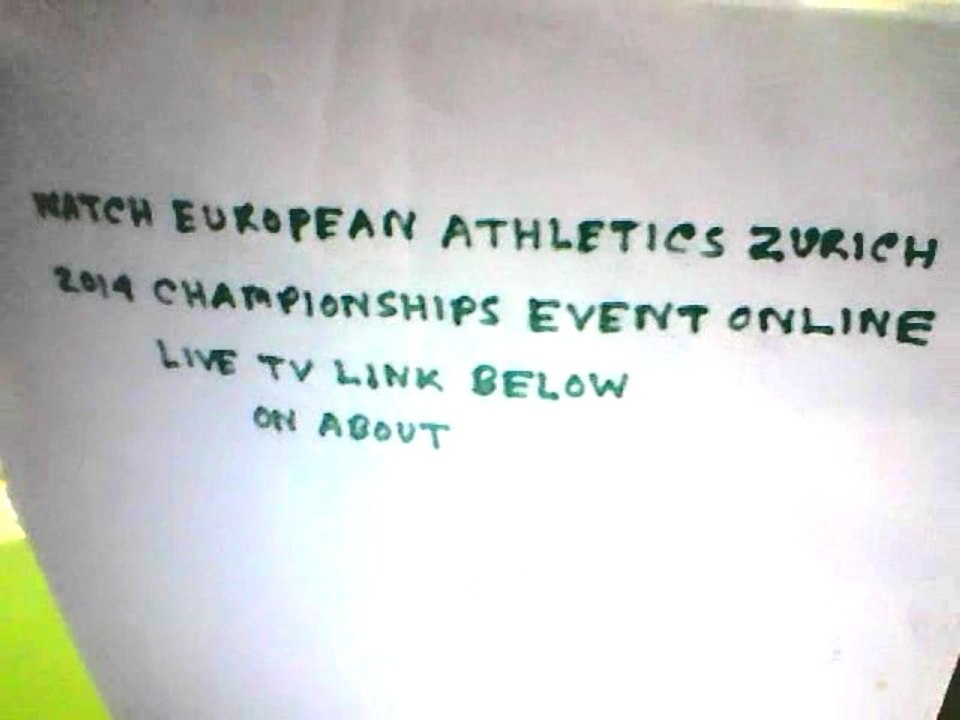 WATCH EUROPEAN ATHLETICS ZURICH
2014 CHAMPIONSHIPS EVENT ONLINE
LIVE TV LINK BELOW
ON ABOUT